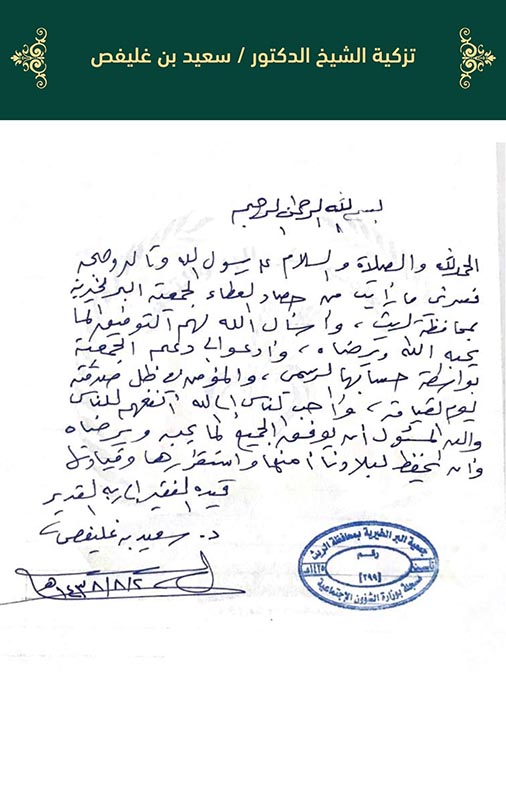 تزكية الشيخ الدكتور / سعيد بن غليفص
بسم الله الرحمن الرحيم
الحمد لله والصلاة والسلام على رسول الله وآله وصحبه
فسرني ما رأيت من حصاد العطاء لجمعية البر الخيرية
بمحافظة الريث، وأسأل الله لهم التوفيق لما
يحبه الله ويرضاه، وأدعو إلى دعم الجمعية
بواسطة حسابها الرسمي، والمؤمن في ظل صدقته
يوم القيامة، وأحب الناس إلى الله أنفعهم للناس
والله المسئول أن يوفق الجميع لما يحبه ويرضاه
وأن يحفظ لبلادنا أمنها واستقرارها وقيادتها
قيده الفقير إلى ربه القدير
د. سعيد بن غليفص
١٤٣٨/٨/٢هـ
جمعية البر الخيرية بمحافظة الريث
رقم
[٢٩٩]
١٤٢٥هـ
مسجلة بوزارة الشؤون الإجتماعية